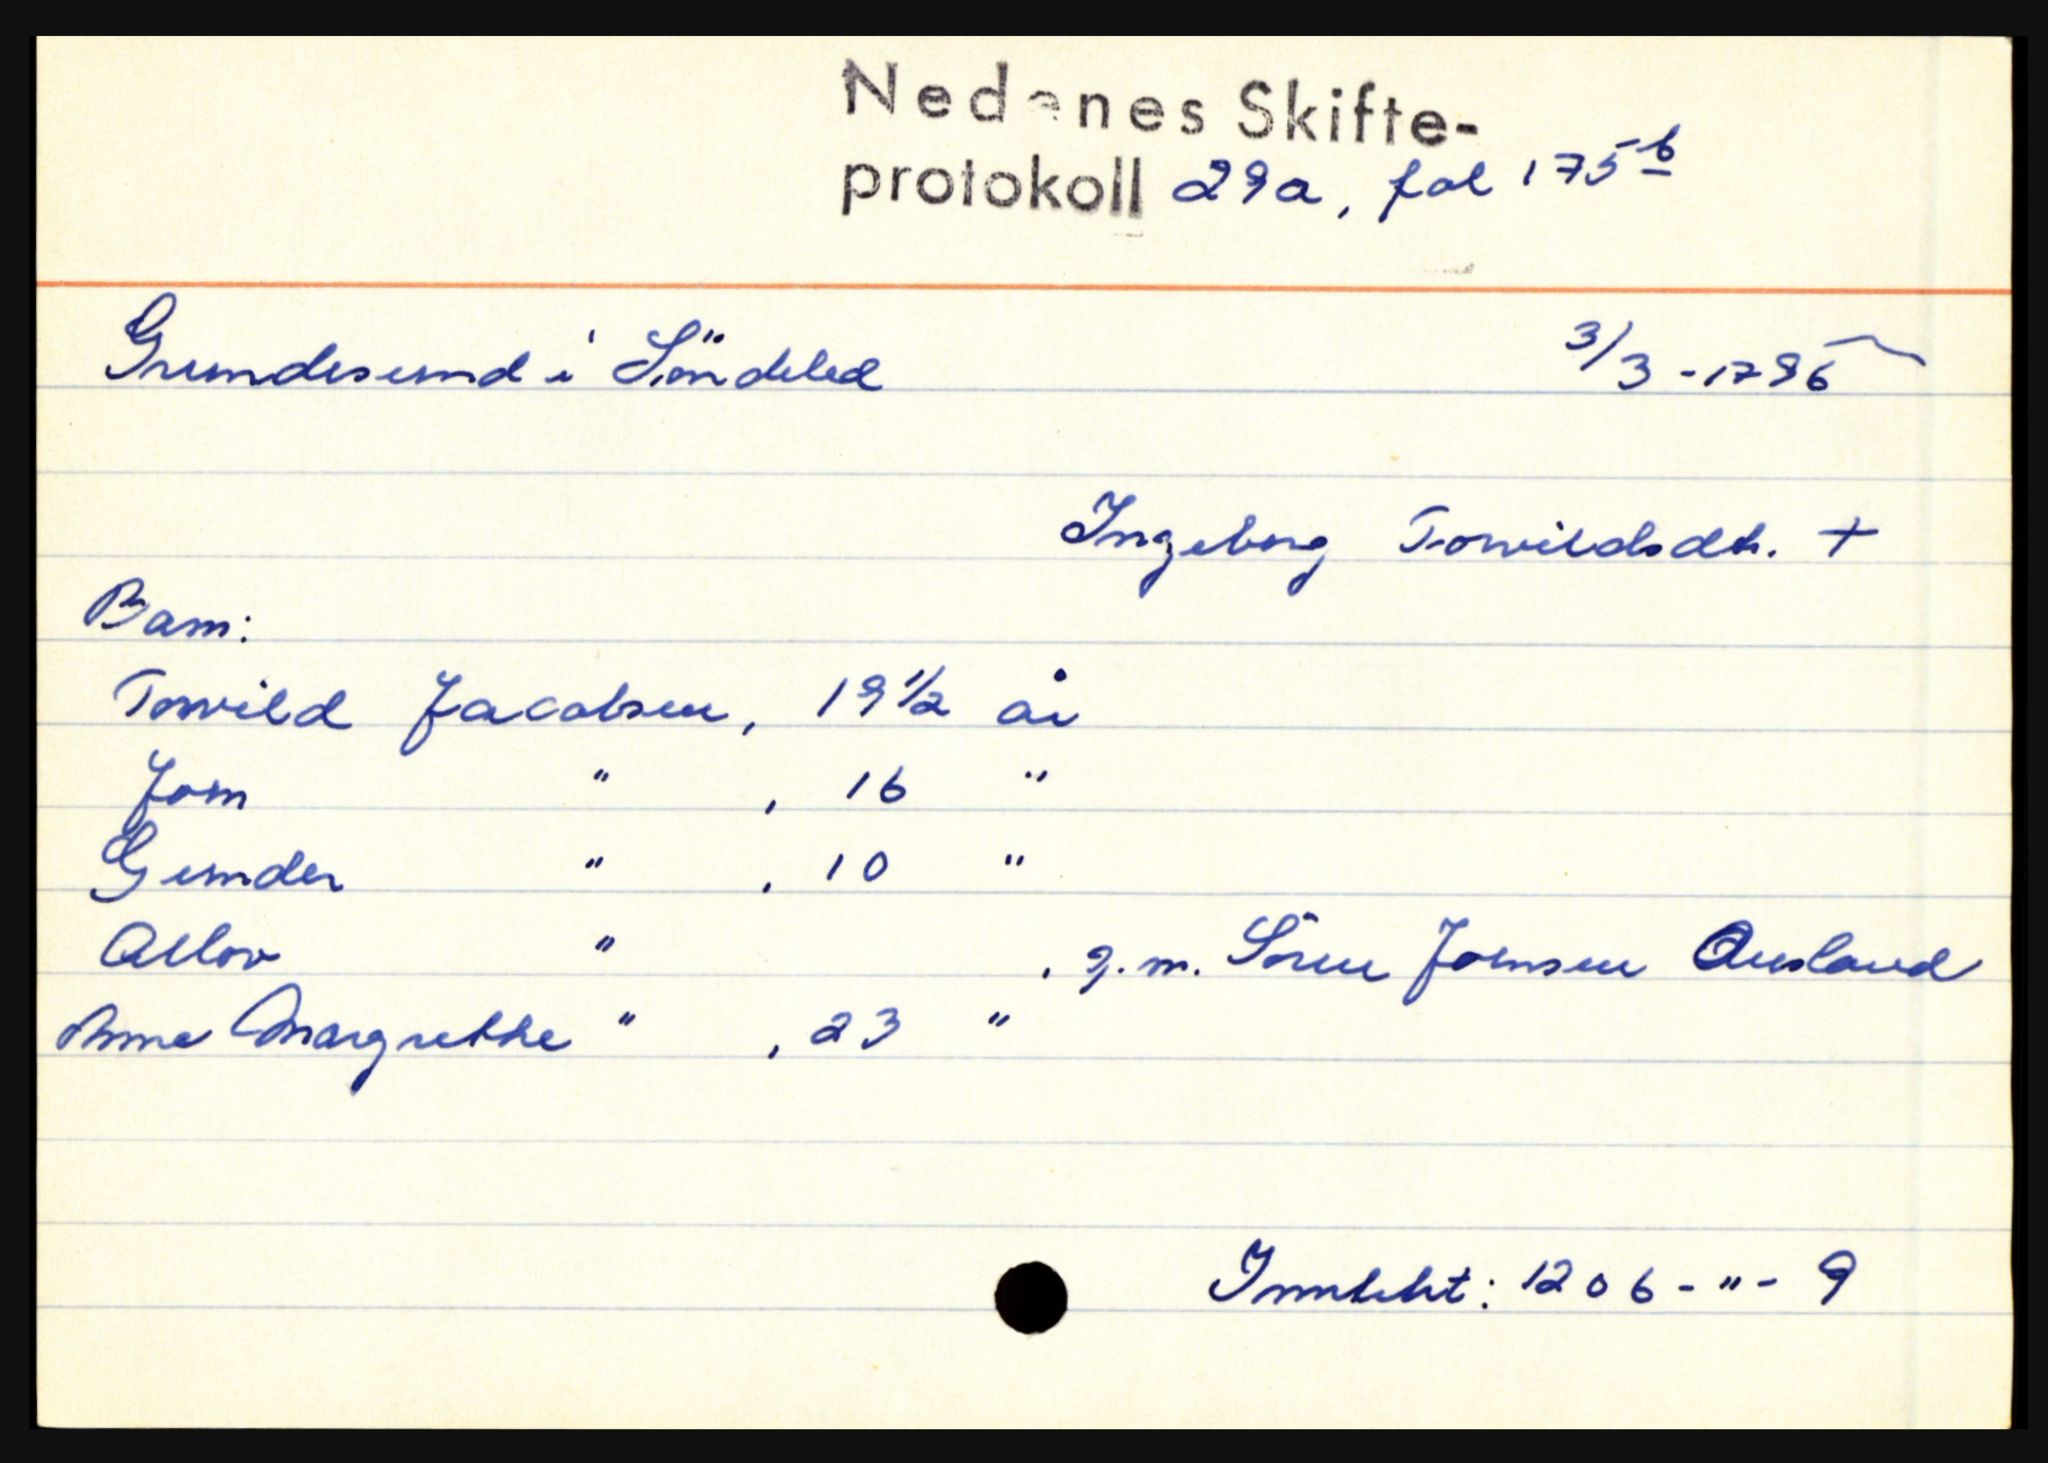 Nedenes Skifte-
protokoll 29a, fol 175b
Grundesund i Söndeled 3/3-1796
Ingeborg Torvildsdtr. +
Barn:
Torvild Jacobsen, 19 1/2 år
Jorn " , 16 "
Gunder " , 10 "
Allov " , g.m. Sören Jörnsen Ausland
Anne Margrethe " , 23 "
Inntekt: 1206-"-9